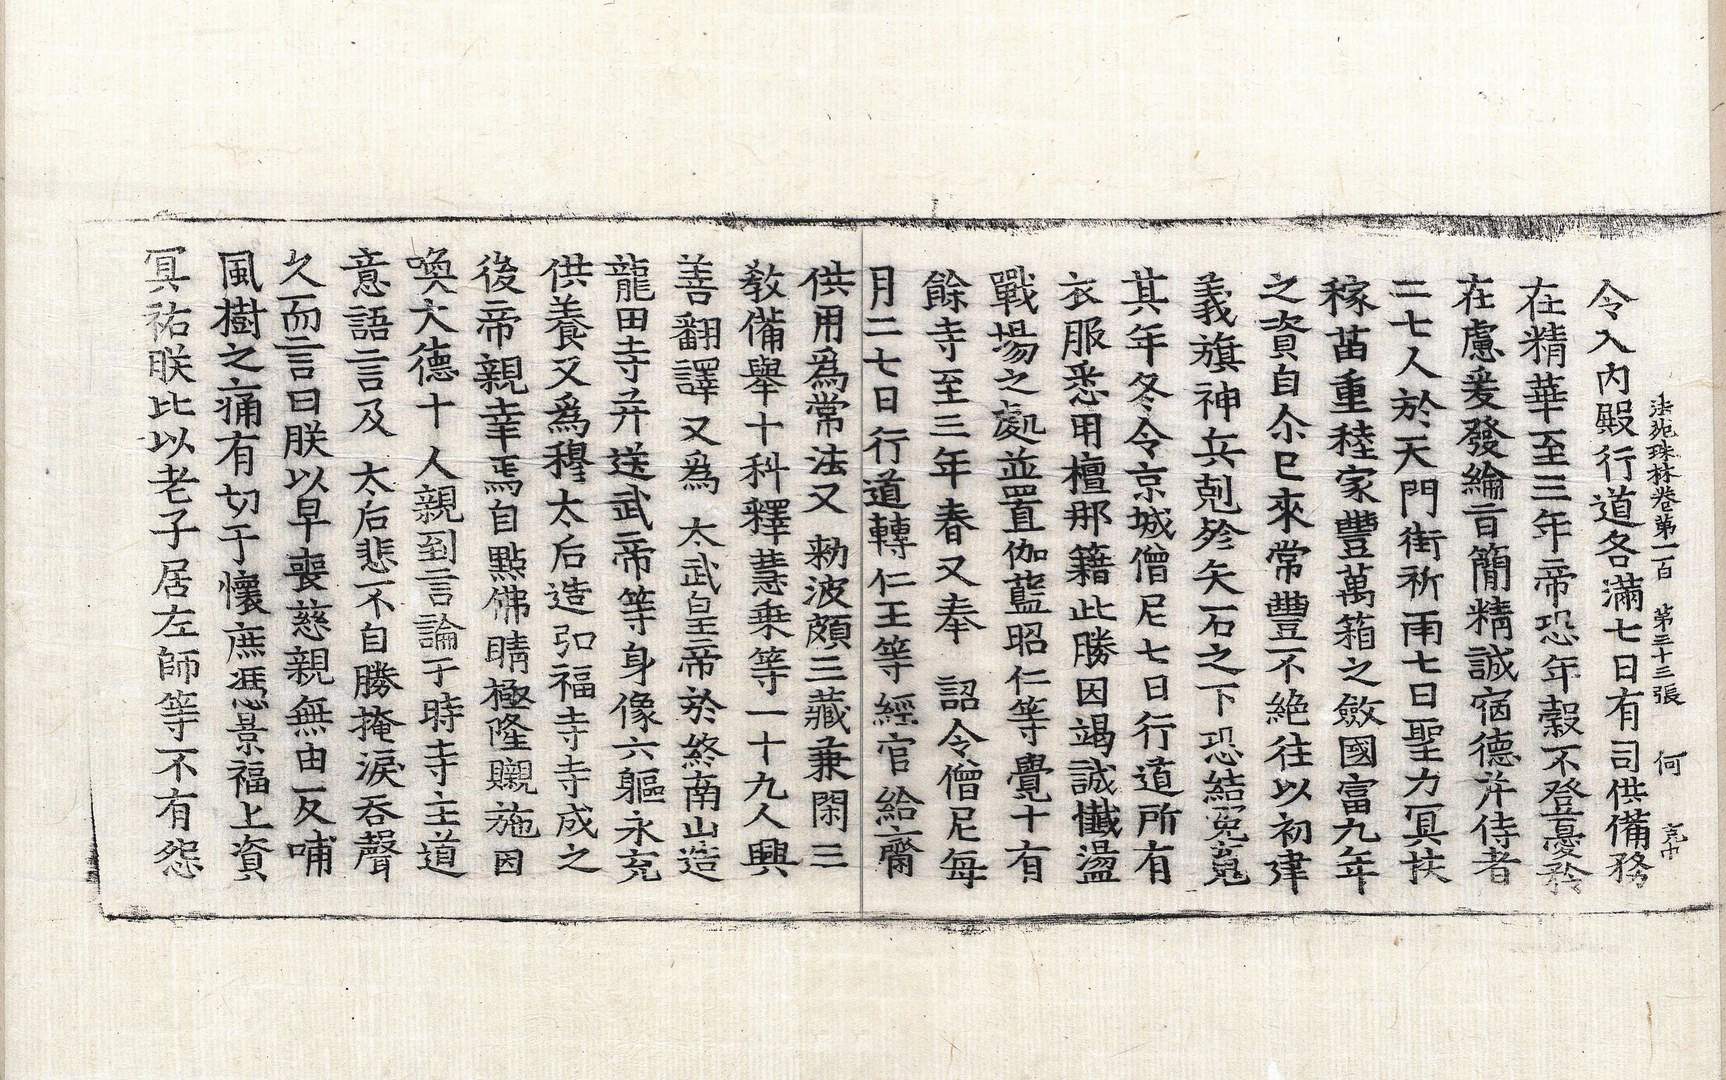 法苑珠林卷第一百 第三十三張 何
令入內殿行道各滿七日有司供備務
在精華至三年帝恐年穀不登憂矜
在慮爰發綸言簡精誠宿德并侍者
二七人於天門街祈雨七日聖力冥扶
稼苗重稑家豐萬箱之斂國富九年
之資自尒已來常豐不絕往以初建
義旗神兵剋殄矢石之下恐結冤䰟
其年冬令京城僧尼七日行道所有
衣服悉用檀那籍此勝因竭誠懺盪
戰場之處並置伽藍昭仁等覺十有
餘寺至三年春又奉 詔令僧尼每
月二七日行道轉仁王等經官給齋
供用爲常法又 勑波頗三藏兼閑三
教備舉十科釋慧乗等一十九人興
善翻譯又爲 太武皇帝於終南山造
龍田寺并送武帝等身像六軀永充
供養又爲穆太后造弘福寺寺成之
後帝親幸焉自點佛睛極隆嚫施因
喚大德十人親到言論于時寺主道
意語言及 太后悲不自勝掩淚吞聲
久而言曰朕以早喪慈親無由反哺
風樹之痛有切于懷庶憑景福上資
冥祐朕比以老子居左師等不有怨